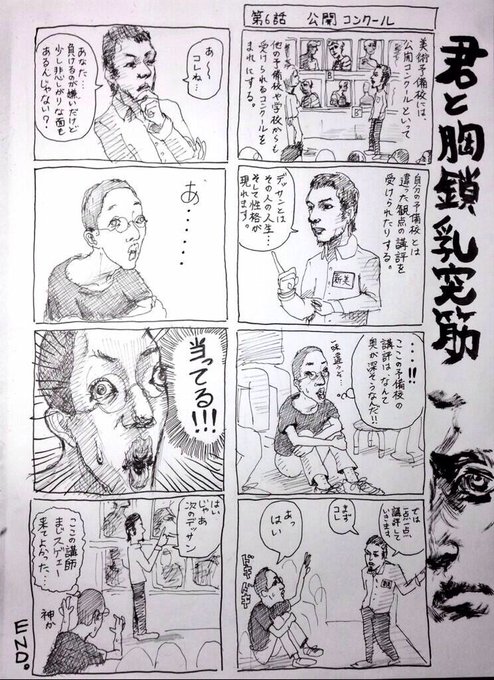 君と胸鎖乳突筋
第6話 公開コンクール
美術予備校には、
公開コンクールといって
他の予備校や学校からも
受けられるコンクールを
まれにする。
自分の予備校とは
違った観点の講評を
受けられたりする。
デッサンとは
その人の人生…
そして性格が
現れます。
新美
・・・・!!
ここの予備校の
講評は、なんて
奥が深そうなんだ!!
では
一点一点、
講評して
いきます。
まず
コレ
あっ
はい
ドキドキ
あ〜
コレね…
あなた…
負けるのが嫌いだけど
少し悲しがりな面も
あるんじゃない?
あ・・・・・
当ってる!!!
はい
じゃあ
次のデッサン
ここの講師
まじスゲェー
来てよかった…
神か
END。